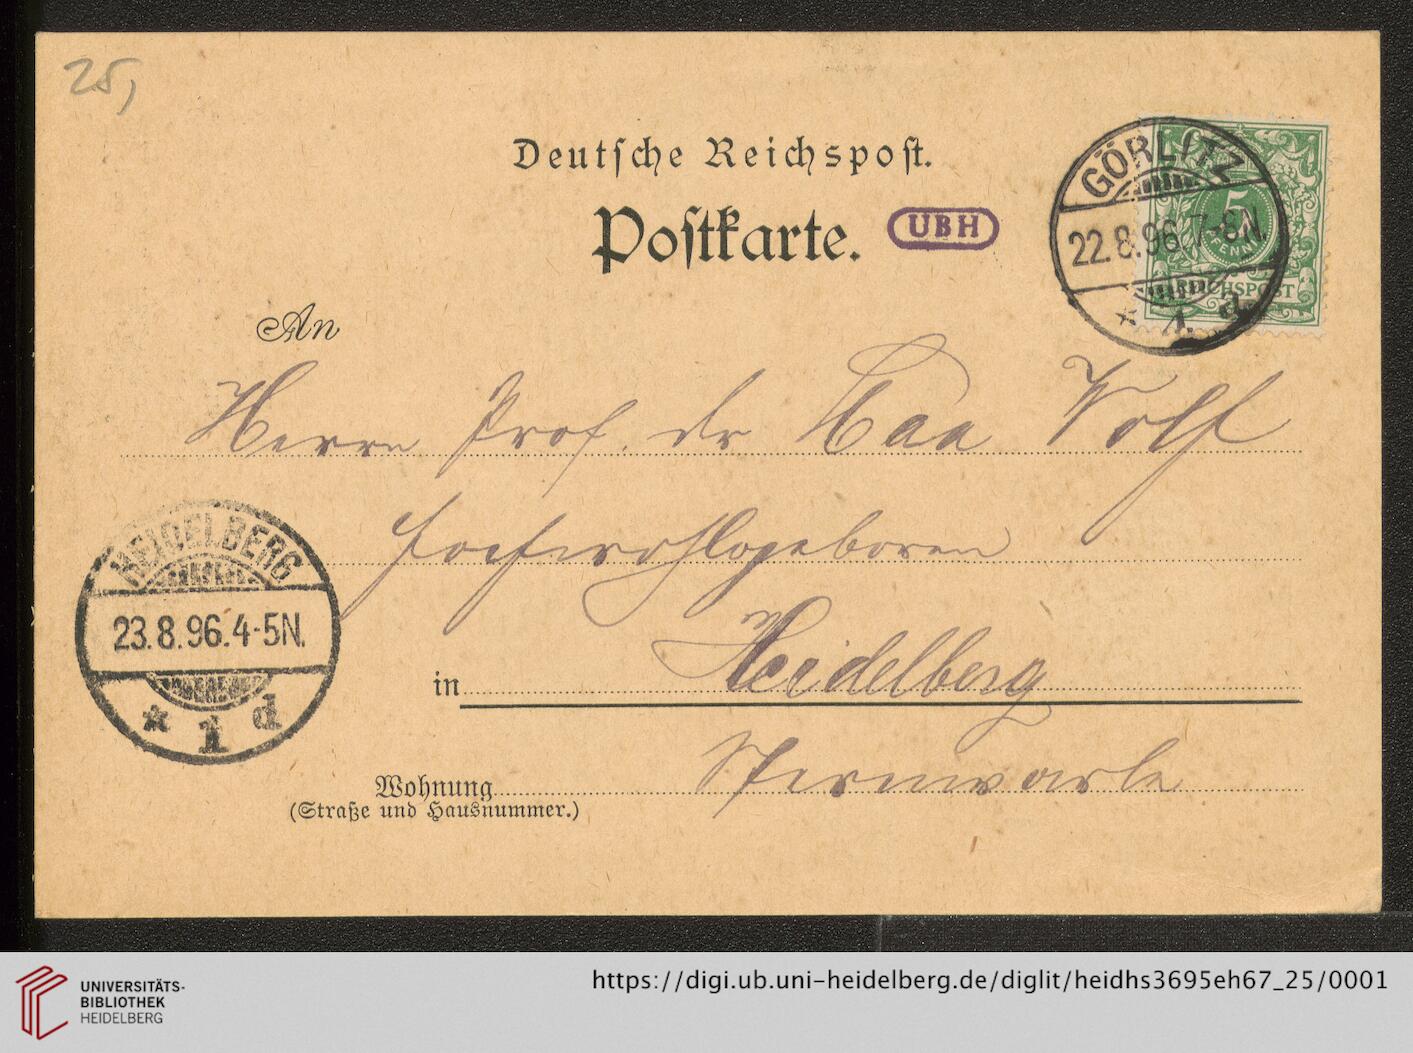 25,
Deutsche Reichspost.
Postkarte.
UBH
GÖRLITZ
22.8.96.7-8N.
* 1. d.
5
PFENNIG
REICHSPOST
An
Herrn Prof. Dr Max Wolf
Hochwohlgeboren
HEIDELBERG
23.8.96.4-5N.
* 1 d
in Heidelberg
Wohnung Sternwarte
(Straße und Hausnummer.)
UNIVERSITÄTS-
BIBLIOTHEK
HEIDELBERG
https://digi.ub.uni-heidelberg.de/diglit/heidhs3695eh67_25/0001